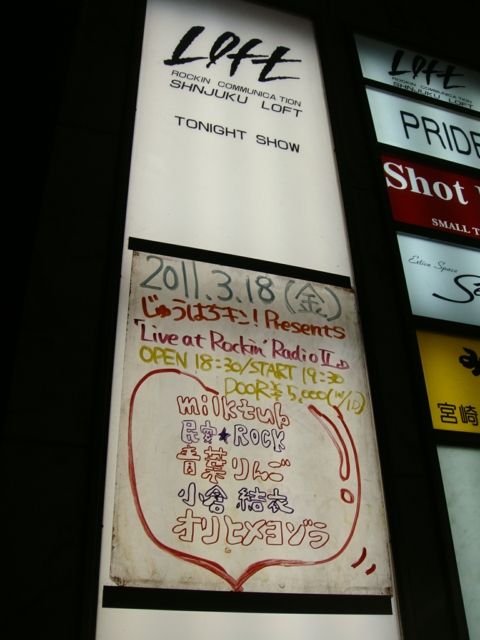 LOFT
ROCKIN COMMUNICATION
SHNJUKU LOFT
TONIGHT SHOW
2011.3.18(金)
じゅうはちキン! Presents
『Live at Rockin' Radio Ⅱ』
OPEN 18:30/START 19:30
DOOR ¥5,000(
milktub
民安★ROCK
青葉りんご
小倉 結衣
オリヒメヨゾラ
LOFT
ROCKIN COMMUNICATION
SHNJUKU LOFT
PRIDE
Shot
SMALL T
Space
宮崎